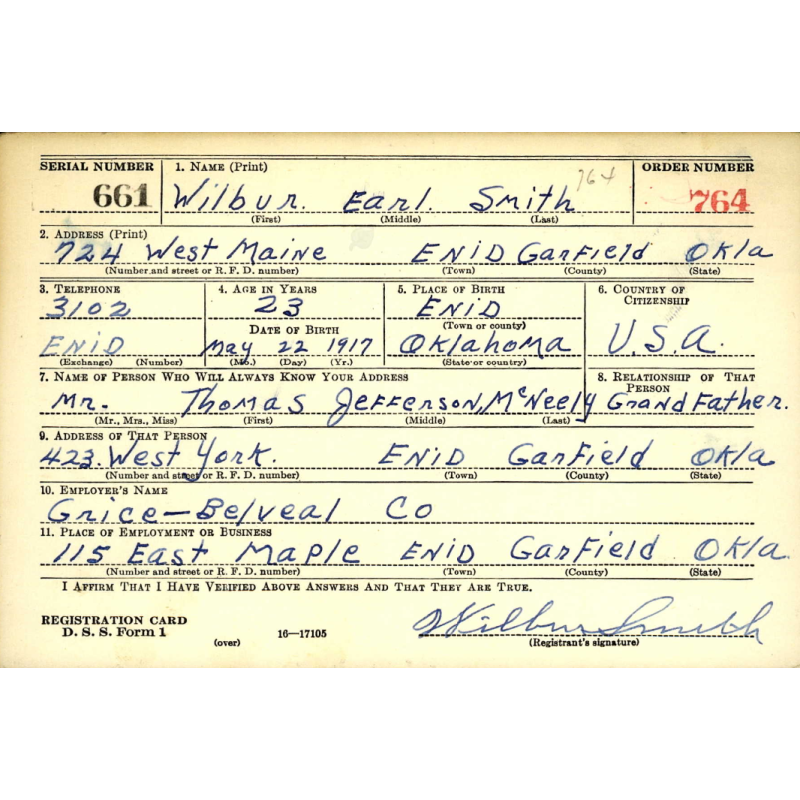 SERIAL NUMBER 1. NAME (Print) ORDER NUMBER
661 Wilbur. Earl. Smith 764 764
(First) (Middle) (Last)
2. ADDRESS (Print)
724 West Maine ENID Garfield Okla
(Number and street or R. F. D. number) (Town) (County) (State)
3. TELEPHONE 4. AGE IN YEARS 5. PLACE OF BIRTH 6. COUNTRY OF CITIZENSHIP
3102 23 ENID
(Town or county)
DATE OF BIRTH
ENID May 22 1917 Oklahoma U.S.A.
(Exchange) (Number) (Mo.) (Day) (Yr.) (State or country)
7. NAME OF PERSON WHO WILL ALWAYS KNOW YOUR ADDRESS 8. RELATIONSHIP OF THAT PERSON
Mr. Thomas Jefferson, McNeely Grand Father.
(Mr., Mrs., Miss) (First) (Middle) (Last)
9. ADDRESS OF THAT PERSON
423. West York. ENID Garfield Okla
(Number and street or R. F. D. number) (Town) (County) (State)
10. EMPLOYER'S NAME
Grice-Belveal Co
11. PLACE OF EMPLOYMENT OR BUSINESS
115 East Maple ENID Garfield Okla.
(Number and street or R. F. D. number) (Town) (County) (State)
I AFFIRM THAT I HAVE VERIFIED ABOVE ANSWERS AND THAT THEY ARE TRUE.
REGISTRATION CARD
D. S. S. Form 1 16—17105 Wilbur Smith
(over) (Registrant's signature)